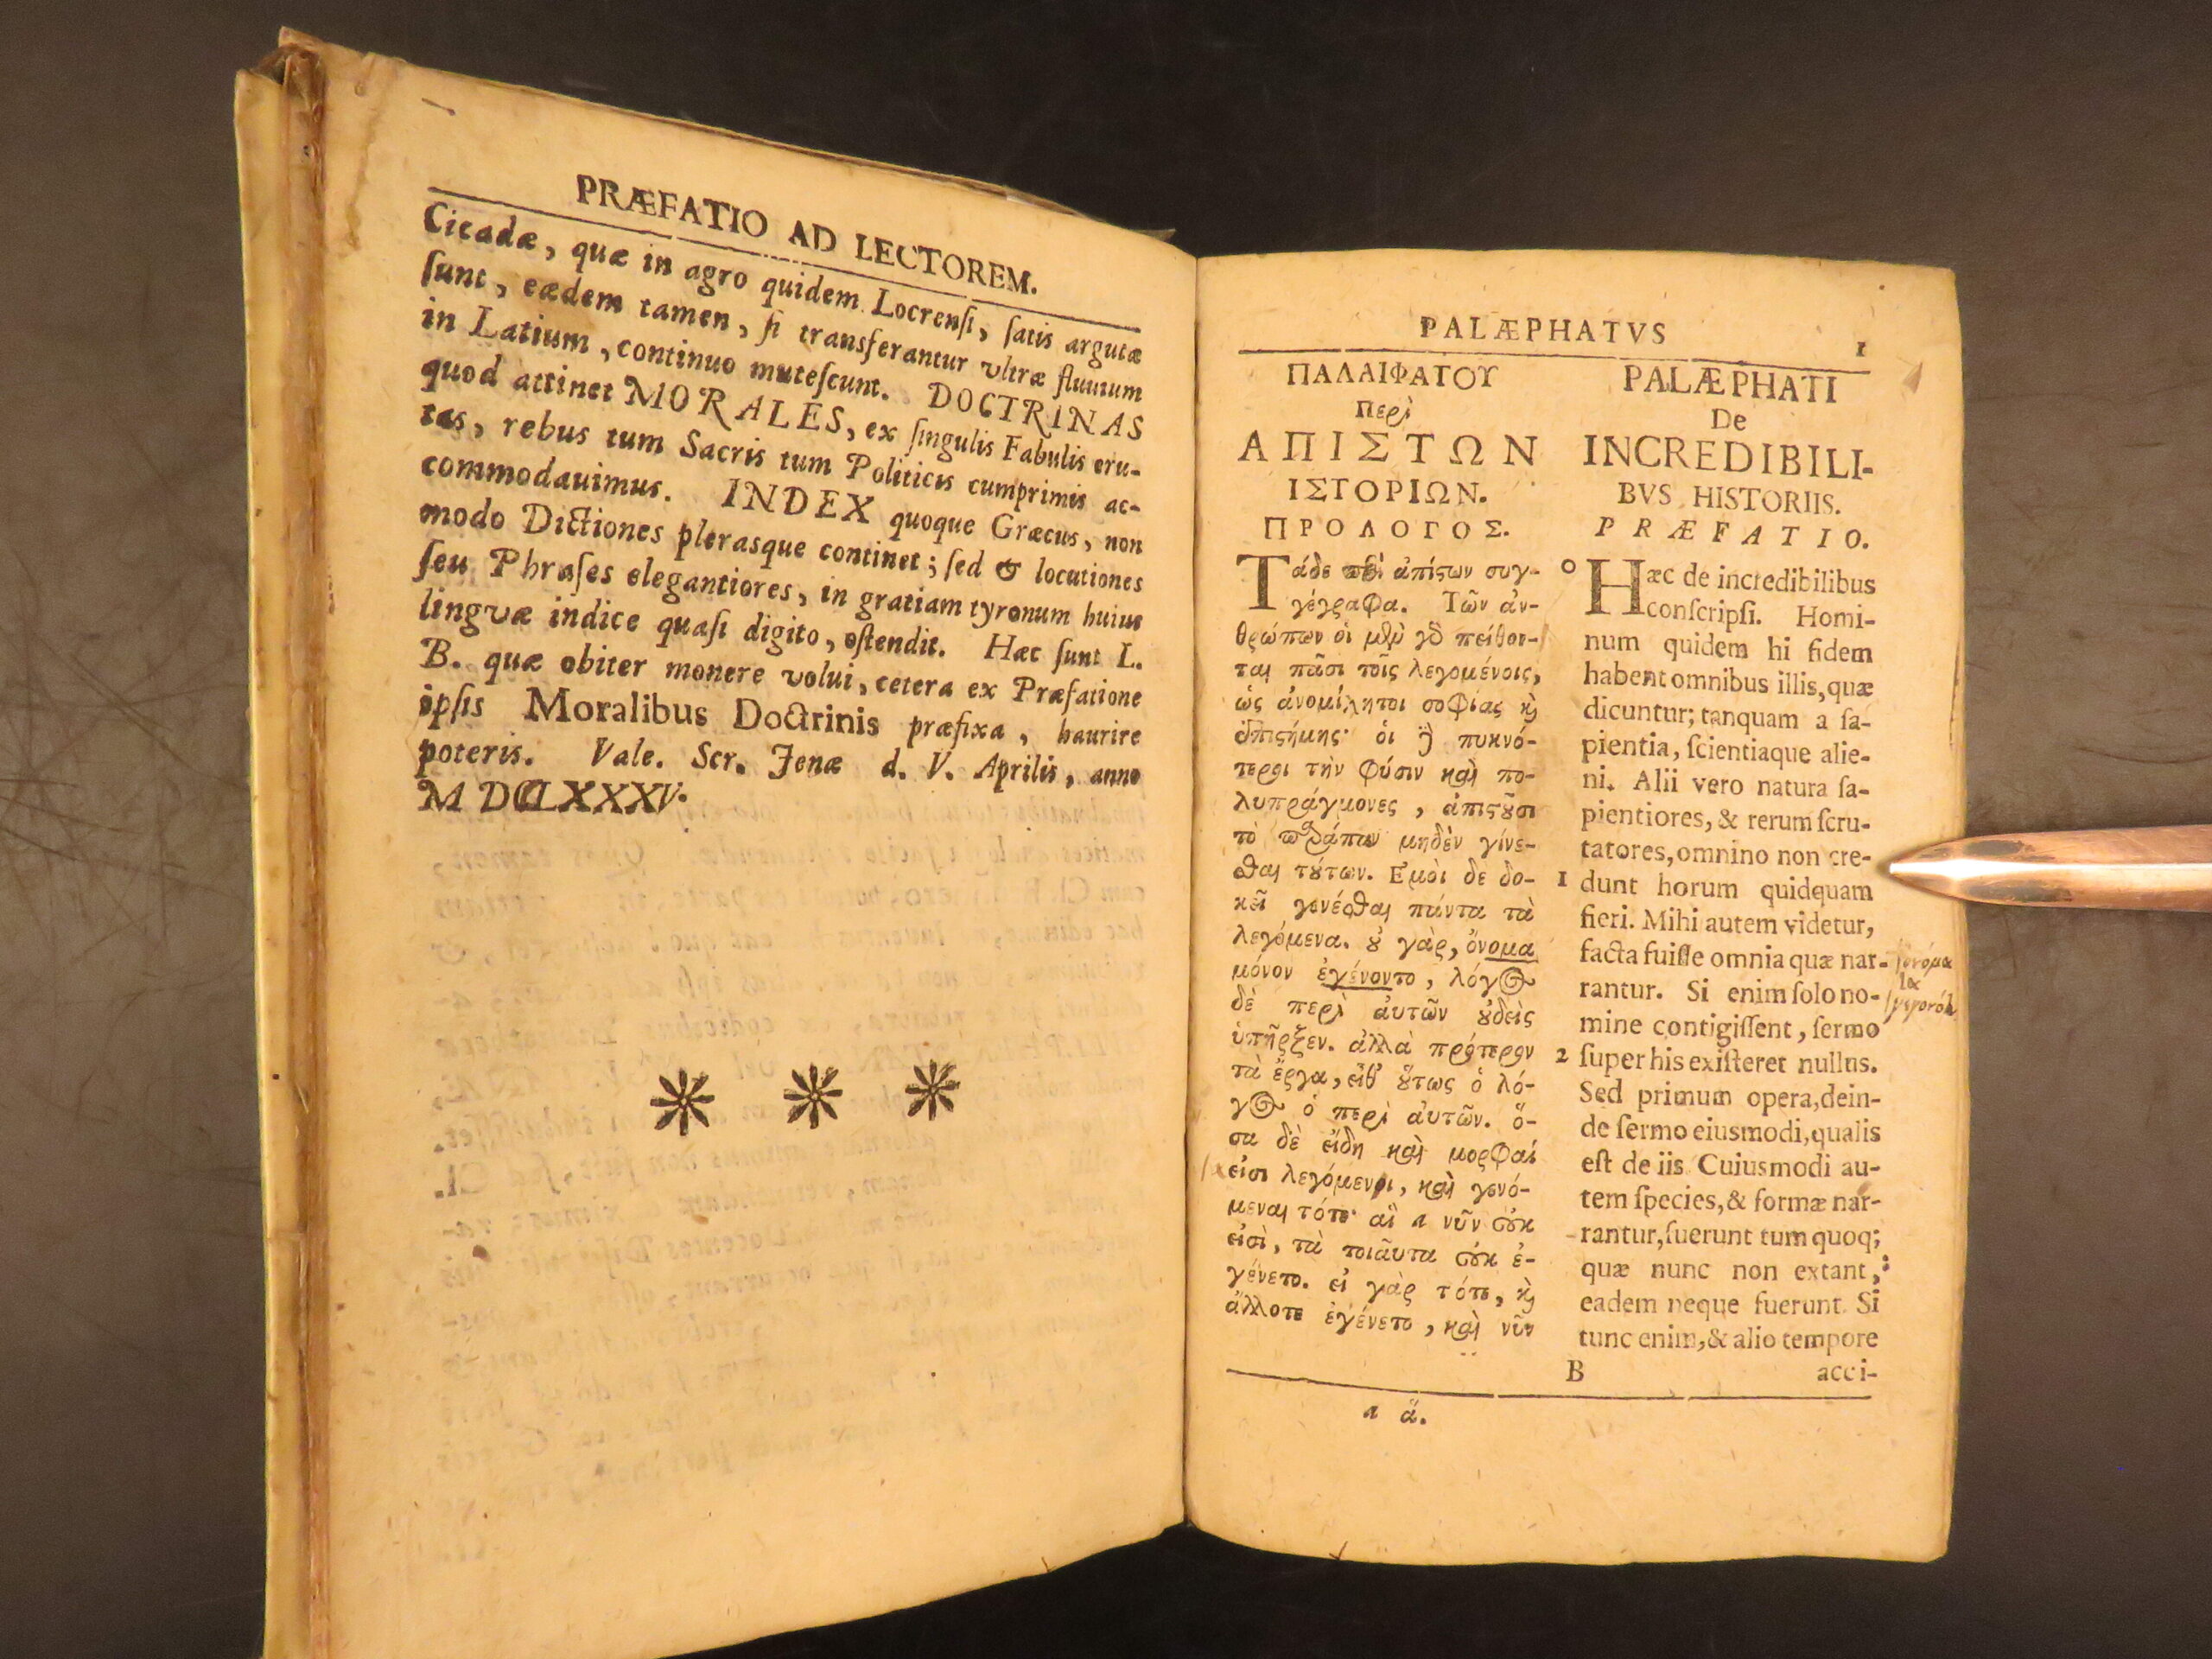 PRÆFATIO AD LECTOREM.
Cicadæ, quæ in agro quidem Locrenſi, ſatis argutæ
ſunt, eædem tamen, ſi transferantur vltra fluuium
in Latium, continuo muteſcunt. DOCTRINAS
quod attinet MORALES, ex ſingulis Fabulis eru-
tas, rebus tum Sacris tum Politicis cumprimis ac-
commodauimus. INDEX quoque Græcus, non
modo Dictiones plerasque continet; ſed & locutiones
ſeu Phraſes elegantiores, in gratiam tyronum huius
lingvæ indice quaſi digito, oſtendit. Hæc ſunt L.
B. quæ obiter monere volui, cetera ex Præfatione
ipſis Moralibus Doctrinis præfixa, haurire
poteris. Vale. Scr. Jenæ d. V. Aprilis, anno
M DCLXXXV.
PALÆPHATVS
1
ΠΑΛΑΙΦΑΤΟΥ
Περὶ
ΑΠΙΣΤΩΝ
ΙΣΤΟΡΙΩΝ.
ΠΡΟΛΟΓΟΣ.
Τάδε περὶ ἀπίϛων συγ-
γέγραφα. Τῶν ἀν-
θρώπων οἱ μὲν γὸ πείθον-
ται πᾶσι τοῖς λεγομένοις,
ὡς ἀνομίλητοι σοφίας ϗ̀
ἐπιϛήμης· οἱ δὲ πυκνό-
τεροι τὴν φύσιν καὶ πο-
λυπράγμονες, ἀπιϛȣ͂σι
τὸ παράπαν μηδὲν γίνε-
σθαι τȣ́των. Εμὸι δε δο-
κεῖ γενέσθαι πάντα τὰ
λεγόμενα. ȣ̓ γὰρ, ὄνομα
μόνον ἐγένοντο, λόγος
δὲ περὶ ἀυτῶν ȣ̓δεὶς
ὑπῆρξεν. ἀλλὰ πρότερον
τὰ ἔργα, εἶθ' ȣ̔́τως ὁ λό-
γος ὁ περὶ ἀυτῶν. ὅ-
σα δὲ εἴδη καὶ μορφαί
εἰσι λεγόμενοι, καὶ γενό-
μεναι τότε· αἳ a νῦν οὐκ
εἰσὶ, τὰ τοιᾶυτα οὐκ ἐ-
γένετο. εἰ γὰρ τότε, ϗ̀
ἄλλοτε ἐγένετο, καὶ νῦν
a ἅ.
PALÆPHATI
De
INCREDIBILI-
BVS HISTORIIS.
PRÆFATIO.
0 Hæc de incredibilibus
conſcripſi. Homi-
num quidem hi fidem
habent omnibus illis, quæ
dicuntur; tanquam a ſa-
pientia, ſcientiaque alie-
ni. Alii vero natura ſa-
pientiores, & rerum ſcru-
tatores, omnino non cre-
1 dunt horum quidquam
fieri. Mihi autem videtur,
facta fuiſſe omnia quæ nar-
rantur. Si enim ſolo no-
mine contigiſſent, ſermo
2 ſuper his exiſteret nullus.
Sed primum opera, dein-
de ſermo eiusmodi, qualis
eſt de iis Cuiusmodi au-
tem ſpecies, & formæ nar-
rantur, fuerunt tum quoq;
quæ nunc non extant,
eadem neque fuerunt Si
tunc enim, & alio tempore
B acci-